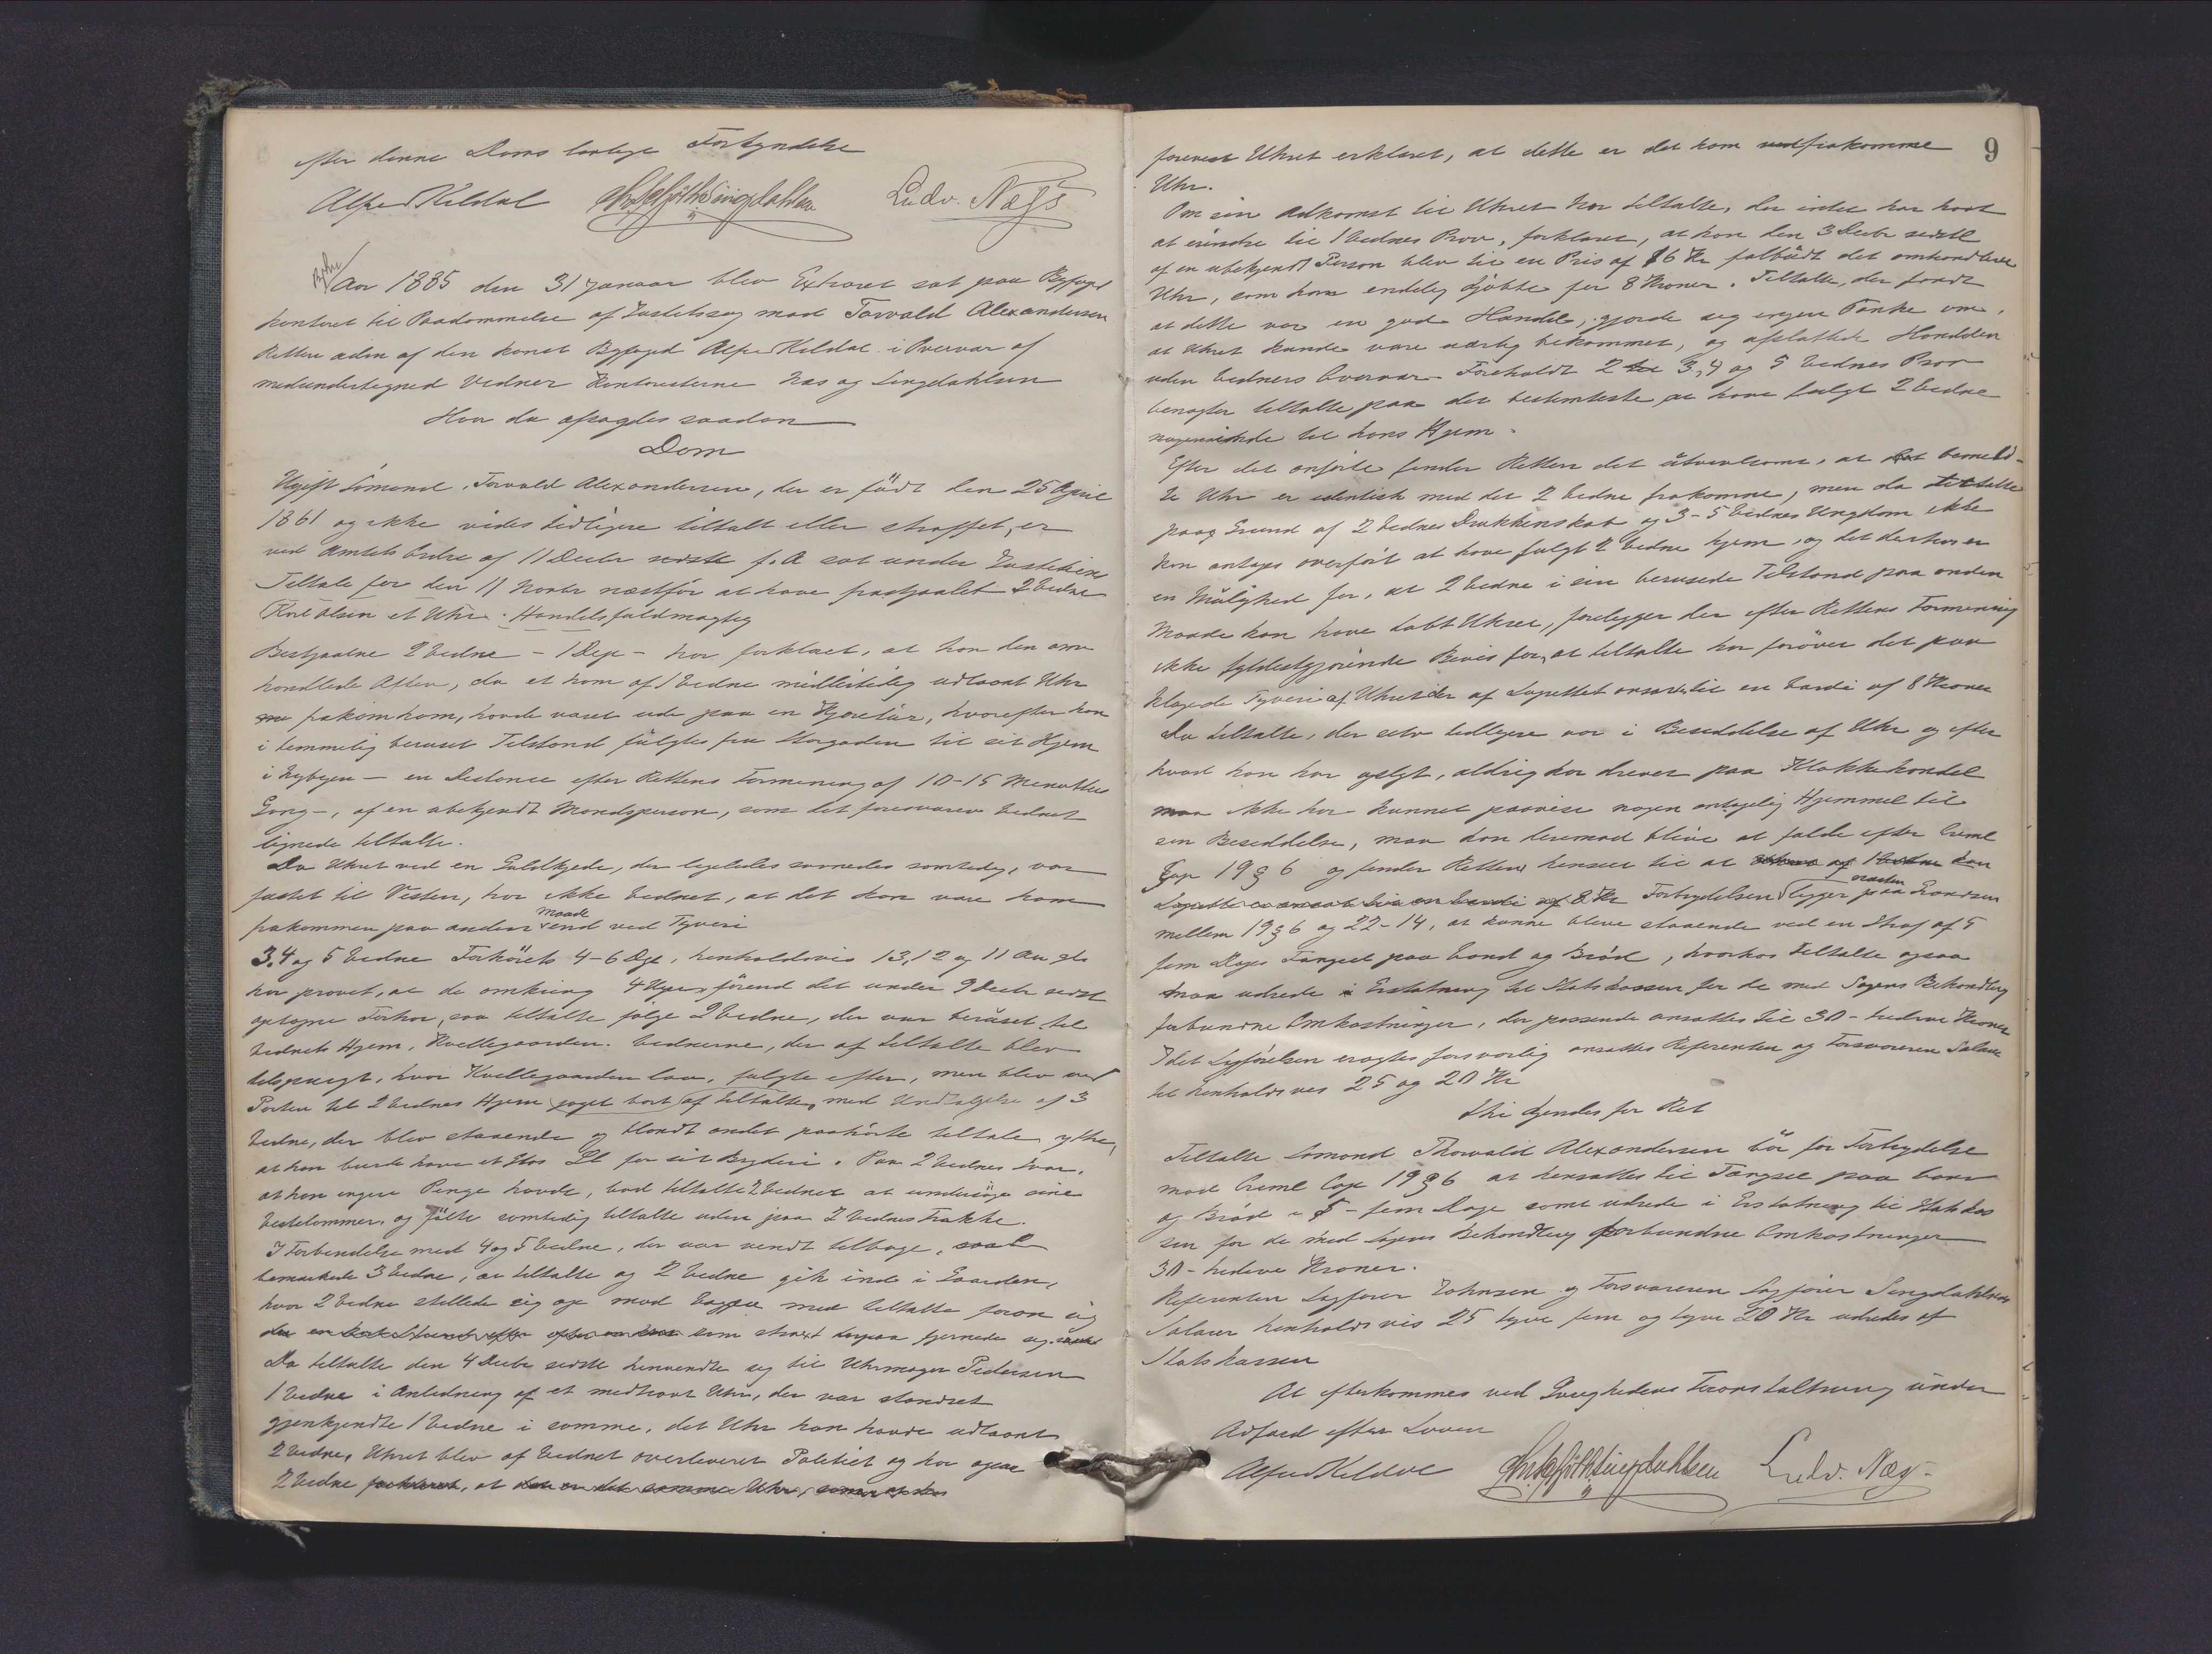 efter denne Doms lovlige Forkyndelse
Alfred Keldal Ludv. Næss
Aar 1885 den 31 Januar blev Extraret sat paa Byfoged
kontoret til Paadømmelse af Justitssag mod Torvald Alexandersen
Retten adm af den konst Byfoged Alfred Keldal i Overvær af
medundertegned Vidner Kontoristerne Næs og Lingdahlsen
Hvor da afsagdes saadan
Dom
Ugift Sømand, Torvald Alexandersen, der er født den 25 April
1861 og ikke vides tidligere tiltalt eller straffet, er
ved Amtets Ordre af 11 Decbr sidste f. A sat under Justitiens
Tiltale for den 11 Novbr næstfør at have frastjaalet 2 Vidne
Karl Olsen et Uhr. Handelsfuldmægtig
Bestjaalne 2 Vidne – 1 Dep – har forklaret, at han den om
handlede Aften, da et ham af 1 Vidne midlertidig udlaant Uhr
frakom ham, havde været ude paa en Kjøretur, hvorefter han
i temmelig beruset Tilstand fulgtes fra Storgaden til sit Hjem
i Nybyen – en Distance efter Rettens Formening af 10-15 Minutters
Gang –, af en ubekjendt Mandsperson, som det foresvæver Vidnet
lignede tiltalte.
Da Uhret ved en Guldkjede, der ligeledes savnedes samtidig, var
fæstet til Vesten, har ikke Vidnet, at det kan være ham
frakommen paa anden Maade end ved Tyveri
3, 4 og 5 Vidne Forhørets 4-6 Dep, henholdsvis 13, 12 og 11 Aar gl
har provet, at de omkring 4 Uger førend det under 9 Decbr sidst
optagne Forhør, saa tiltalte følge 2 Vidne, der var beruset til
Vidnets Hjem, Kvellegaarden. Vidnerne, der af tiltalte blev
tilspurgt, hvor Kvellegaarden laa, fulgte efter, men blev ved
Porten til 2 Vidnes Hjem jaget bort af tiltalte, med Undtagelse af 3
Vidne, der blev staaende og blandt andet paahørte tiltale ytre,
at han burde have et Glas Øl for sit Bryderi. Paa 2 Vidnes Svar,
at han ingen Penge havde, bad tiltalte 2 Vidnet at undersøge sine
Vestelommer, og følte samtidig tiltalte uden paa 2 Vidnes Frakke.
I Forbindelse med 4 og 5 Vidne, der var vendt tilbage,
bemærkede 3 Vidne, at tiltalte og 2 Vidne gik ind i Gaarden,
hvor 2 Vidne stillede sig op mod Væggen med tiltalte foran sig
som straxt derpaa fjernede sig.
Da tiltalte den 4 Decbr sidste henvendte sig til Uhrmager Pedersen
1 Vidne i Anledning af et medhavt Uhr, der var standset
gjenkjendte 1 Vidne i samme, det Uhr han havde udlaant
2 Vidne, Uhret blev af Vidnet overleveret Politiet og har ogsaa
2 Vidne forklaret, at det er det samme Uhr, som
9
forevist Uhret erklæret, at dette er det ham frakomme
Uhr.
Om sin Adkomst til Uhret har tiltalte, der intet har havt
at erindre til 1 Vidnes Prov, forklaret, at han den 3 Decbr sidstl
af en ubekjendt Person blev til en Pris af 16 Kr falbudt det omhandlede
Uhr, som han endelig kjøbte for 8 Kroner. Tiltalte, der fandt
at dette var en god Handel, gjorde sig ingen Tanke om,
at Uhret kunde være uærlig bekommet, og afsluttede Handelen
uden Vidners Overvær. Foreholdt 2 3, 4 og 5 Vidnes Prov
benægter tiltalte paa det bestemteste at have fulgt 2 Vidne
nogensinde til hans Hjem.
Efter det anførte finder Retten det utvivlsomt, at bemeld-
te Uhr er identisk med det 2 Vidne frakomne, men da tiltalte
paa Grund af 2 Vidnes Drukkenskab og 3-5 Vidnes Ungdom ikke
kan antages overført at have fulgt 2 Vidne hjem, og det derhos er
en Mulighed for, at 2 Vidne i sin berusede Tilstand paa anden
Maade kan have tabt Uhret, foreligger der efter Rettens Formening
ikke fyldestgjørende Bevis for, at tiltalte har forøvet det paa
klagede Tyveri af Uhret der af Lagrettet ansattes til en Værdi af 8 Kroner
Da tiltalte, der selv tidligere var i Besiddelse af Uhr og efter
hvad han har oplyst, aldrig har drevet paa Klokkehandel
ikke har kunnet paavise nogen antagelig Hjemmel til
sin Besiddelse, maa han derimod blive at fælde efter Criml
Cap 19 § 6 og finder Retten hensees til at
Forbrydelsen næsten ligger paa Grændsen
mellem 19 § 6 og 22-14, at kunne blive staaende ved en Straf af 5
fem Dages Fængsel paa Vand og Brød, hvorhos tiltalte ogsaa
maa udrede i Erstatning til Statskassen for de med Sagens Behandling
forbundne Omkostninger, der passende ansættes til 30 – tredive Kroner
Idet Sagførelsen eragtes forsvarlig ansættes Referenten og Forsvareren Salær
til henholdsvis 25 og 20 Kr
Thi kjendes for Ret
Tiltalte Sømand Thorvald Alexandersen bør for Forbrydelse
mod Criml Cap 19 § 6 at hensættes til Fængsel paa Vand
og Brød i 5 – fem Dage samt udrede i Erstatning til Statskas
sen for de med Sagens Behandling forbundne Omkostninger
30 – tredive Kroner.
Referenten Sagfører Johnsen og Forsvareren Sagfører Lingdahlsens
Salærer henholdsvis 25 tyve fem og tyve 20 Kr udredes af
Statskassen
At efterkommes ved Øvrighedens Foranstaltning under
Adfærd efter Loven
Alfred Keldal Ludv. Næss